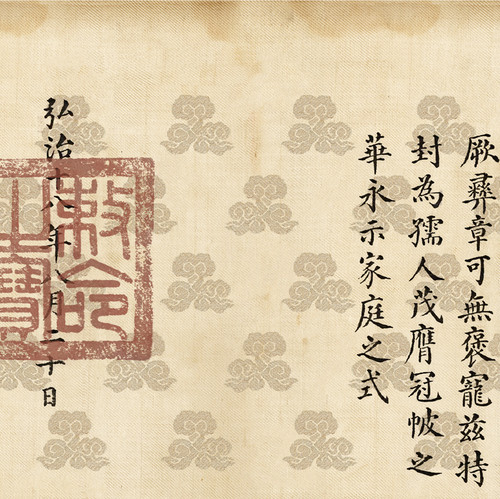 厥彝章可無褒寵茲特
封為孺人茂膺冠帔之
華永示家庭之式
弘治十八年八月二十日
敕命
之寶